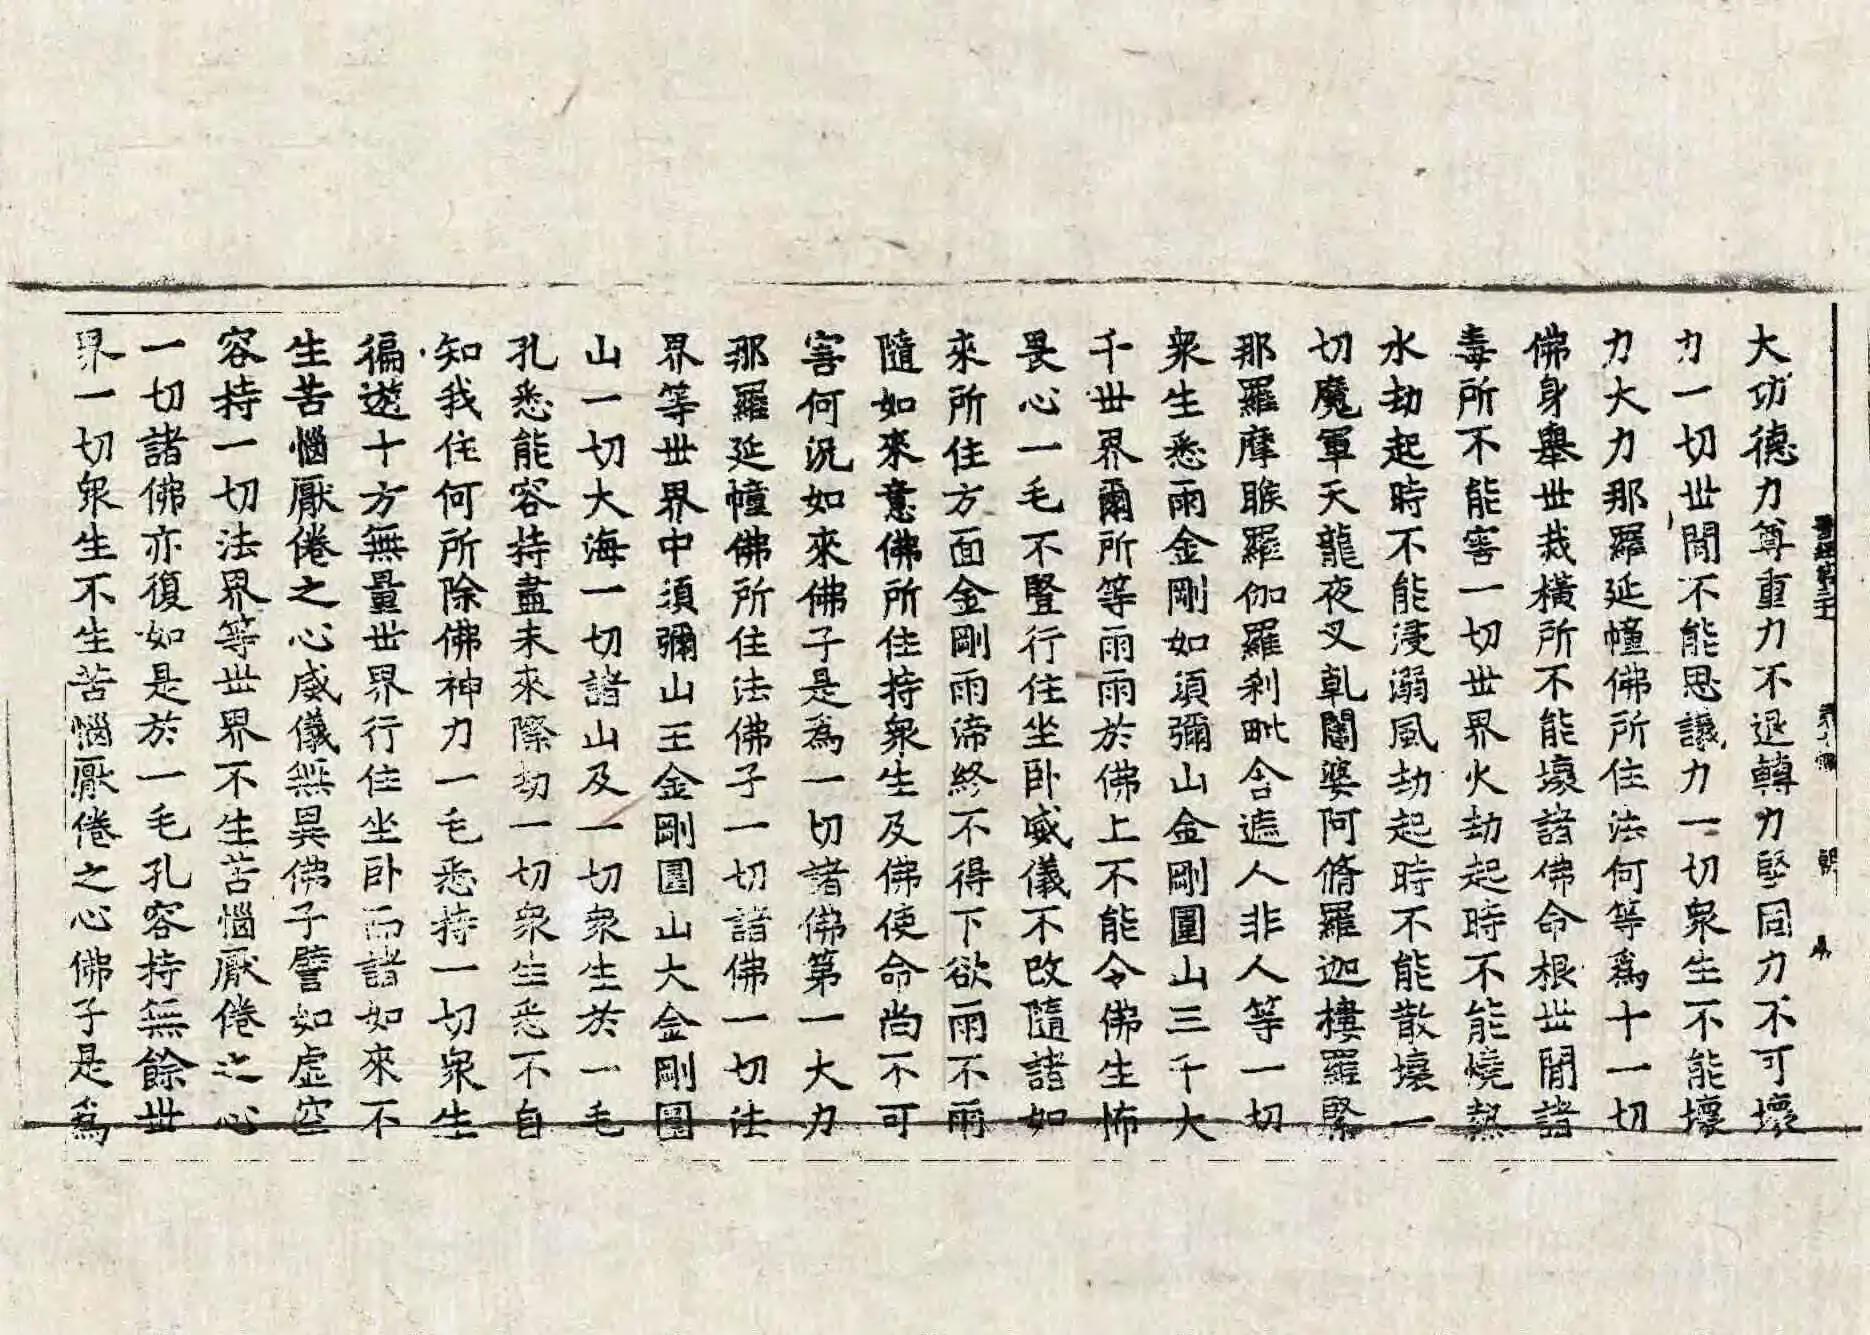 大功德力尊重力不退轉力堅固力不可壞
力一切世間不能思議力一切衆生不能壞
力大力那羅延幢佛所住法何等爲十一切
佛身舉世烖橫所不能壞諸佛命根世間諸
毒所不能害一切世界火劫起時不能燒熱
水劫起時不能浸溺風劫起時不能散壞一
切魔軍天龍夜叉乹闥婆阿脩羅迦樓羅緊
那羅摩睺羅伽羅剎毗舍遮人非人等一切
衆生悉雨金剛如須彌山金剛圍山三千大
千世界爾所等雨雨於佛上不能令佛生怖
畏心一毛不豎行住坐卧威儀不改隨諸如
來所住方面金剛雨渧終不得下欲雨不雨
隨如來意佛所住持衆生及佛使命尚不可
害何況如來佛子是爲一切諸佛第一大力
那羅延幢佛所住法佛子一切諸佛一切法
界等世界中須彌山王金剛圍山大金剛圍
山一切大海一切諸山及一切衆生於一毛
孔悉能容持盡未來際劫一切衆生悉不自
知我住何所除佛神力一毛悉持一切衆生
徧遊十方無量世界行住坐卧而諸如來不
生苦惱厭倦之心威儀無異佛子譬如虛空
容持一切法界等世界不生苦惱厭倦之心
一切諸佛亦復如是於一毛孔容持無餘世
界一切衆生不生苦惱厭倦之心佛子是爲